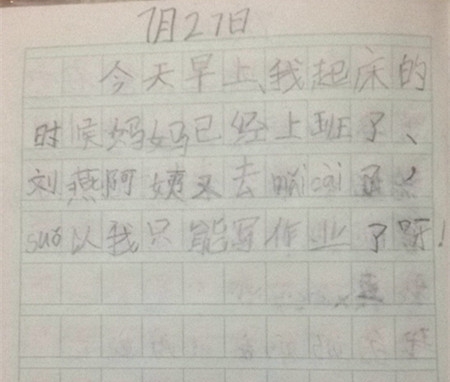 7月27日
今天早上、我起床的
时候妈妈已经上班了、
刘燕阿姨又去mǎicài了，
suǒ以我只能写作业了呀！